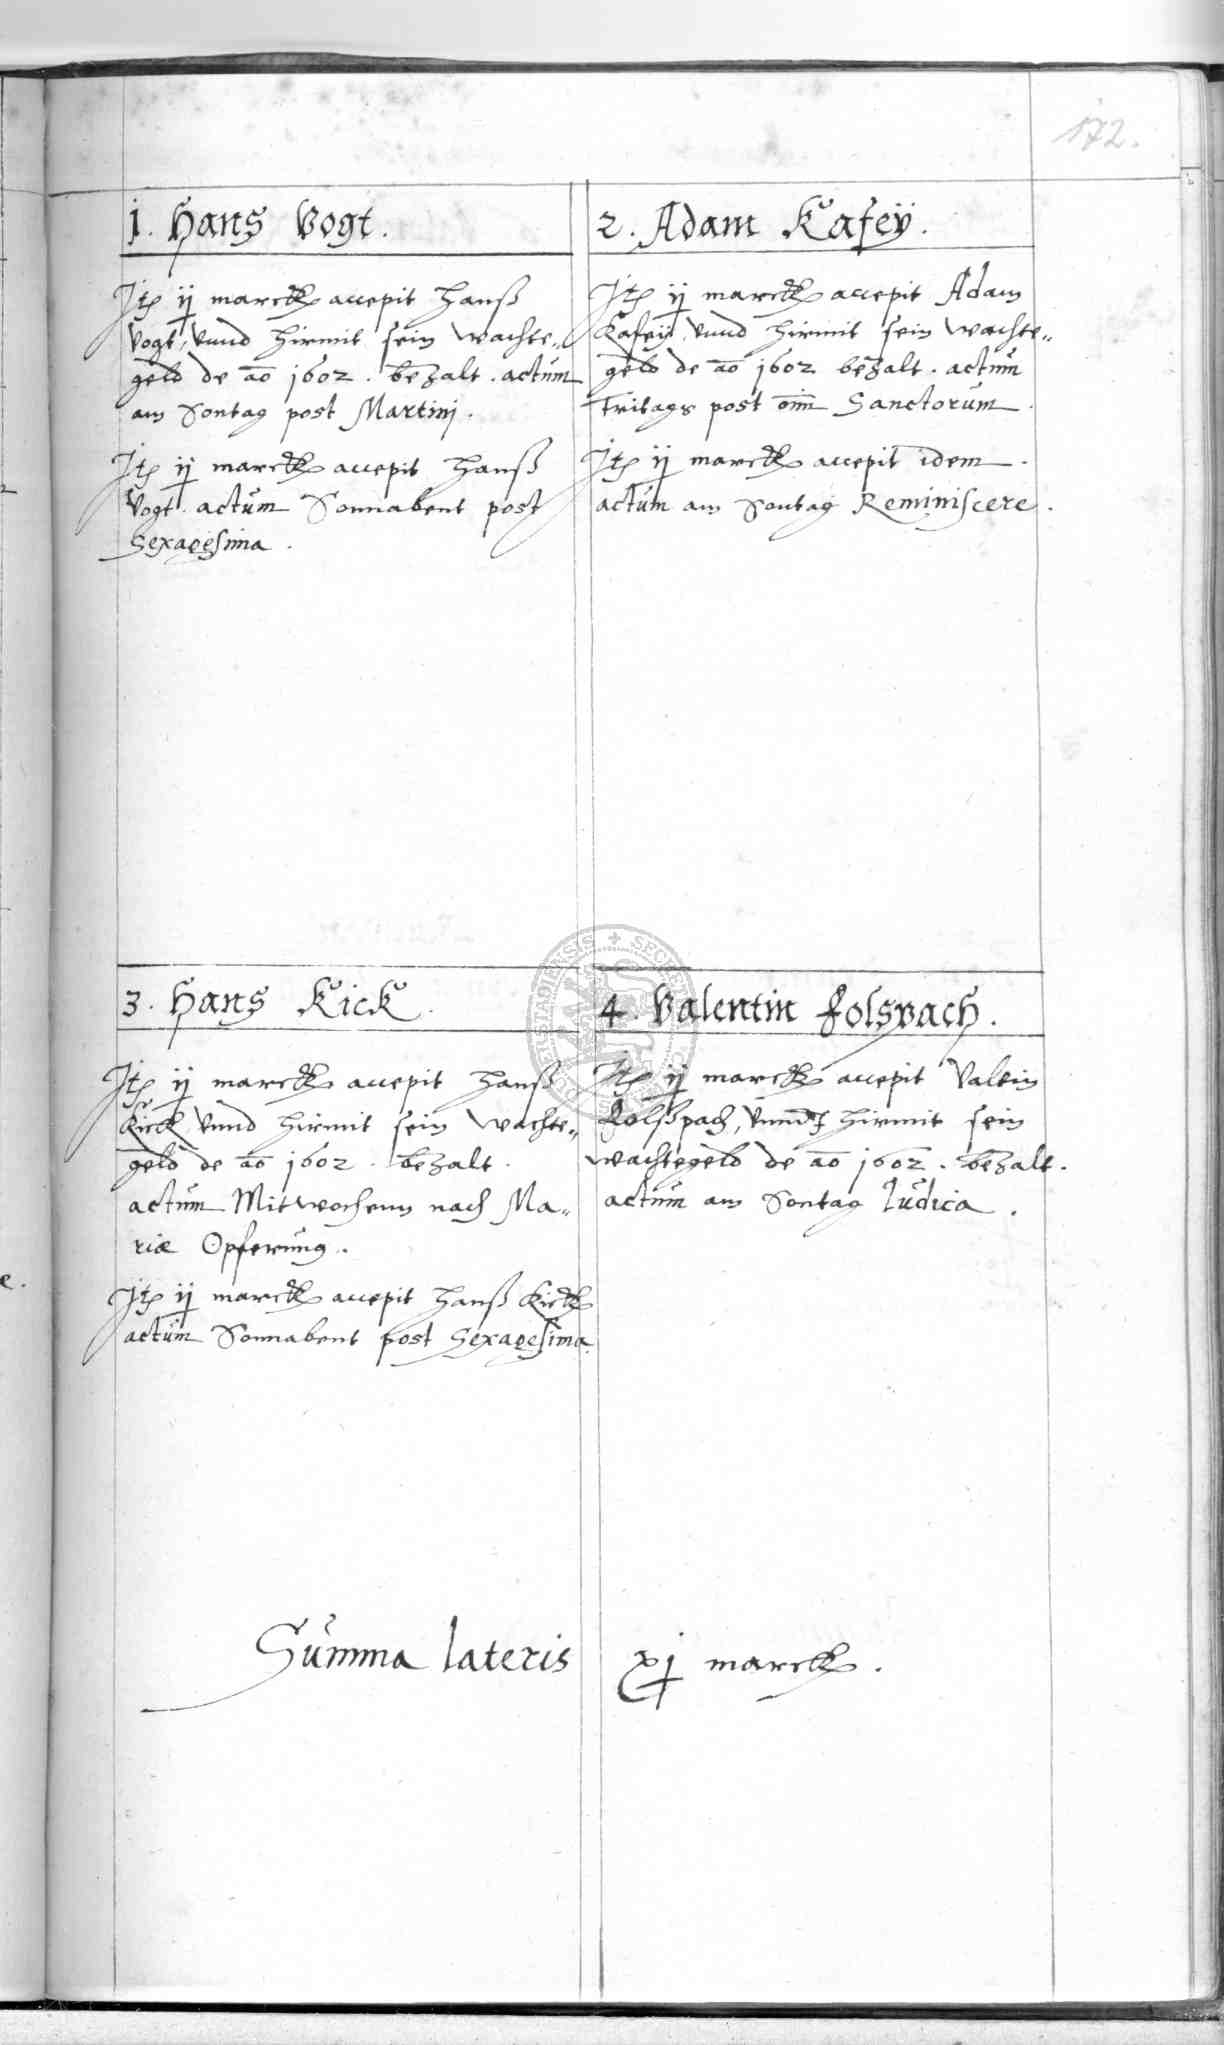 172.
1. Hans Vogt.
Itē ij marck accepit Hanß
Vogt, vnnd hirmit sein wachte„
geld de aō 1602. bezalt. actum
am Sontag post Martinj.
Itē ij marck accepit Hanß
Vogt actum Sonnabent post
Sexagesima.
2. Adam Kafeÿ.
Itē ij marck accepit Adam
Kafeÿ, vnnd hirmit sein wachte„
geld de aō 1602 bezalt. actum
Fritags post om̄ Sanctorum
Itē ij marck accepit idem.
actum am Sontag Reminiscere.
3. Hans Kick.
Itē ij marck accepit Hanß
Kick vnnd hirmit sein wachte„
geld de aō 1602. bezalt.
actum Mitwochenn nach Ma„
riæ Opferung.
Itē ij marck accepit Hanß Kick
actum Sonnabent post Sexagesima.
4. Valentin Folspach.
Itē ij marck accepit Valtin
Folßpach, vnnd hirmit sein
wachtegeld de aō 1602. bezalt.
actum am Sontag Iudica.
Summa lateris xj marck.